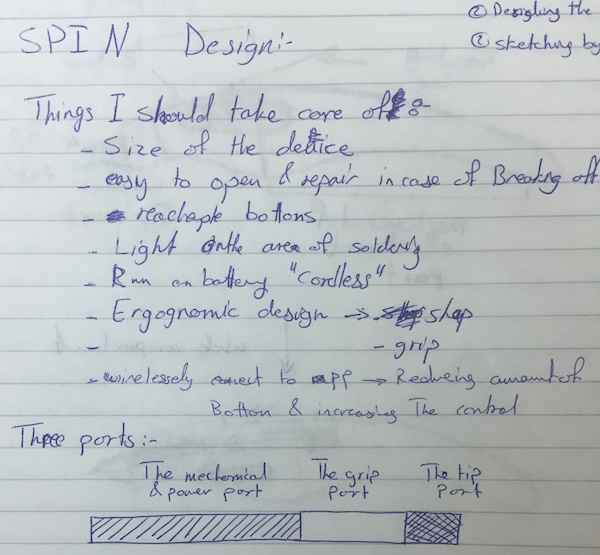 ② Designing the
② sketching by
SPIN Design:-
Things I should take care of :-
- Size of the device
- easy to open & repair in case of Breaking off
- reachaple bottons
- Light on the area of soldering
- Run on battery "Cordless"
- Ergognomic design → shap
- - grip
- wirelessely connect to app → Reducing amount of
Botton & increasing The control
Three ports:-
The mechanical The grip The tip
& power port port port